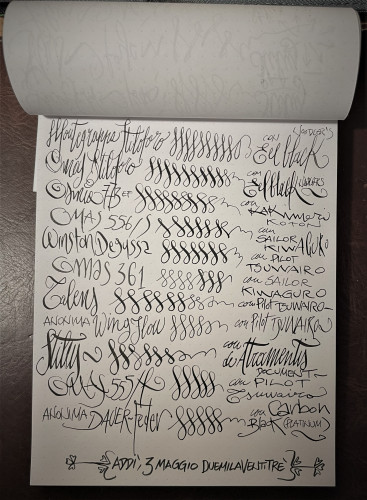 Montegrappa Stiloforo con Eel black (Noodler's)
Omas Stiloforo con Eel black (Noodler's)
Osmia 73 EF con KAKIMORI KOTON
OMAS 556/S con SAILOR KIWAGURO
Winston Degussa con Pilot TSUWAIRO
Omas 361 con SAILOR KIWAGURO
Talens con Pilot TSUWAIRO
ANONIMA Wing Flow con Pilot TSUWAIRO
con de Atramentis DOCUMENT
Omas 557 con PILOT Tsuwairo
ANONIMA DAUER-Feder con Carbon Black (PLATINUM)
ADDI' 3 MAGGIO DUEMILAVENTITRE'